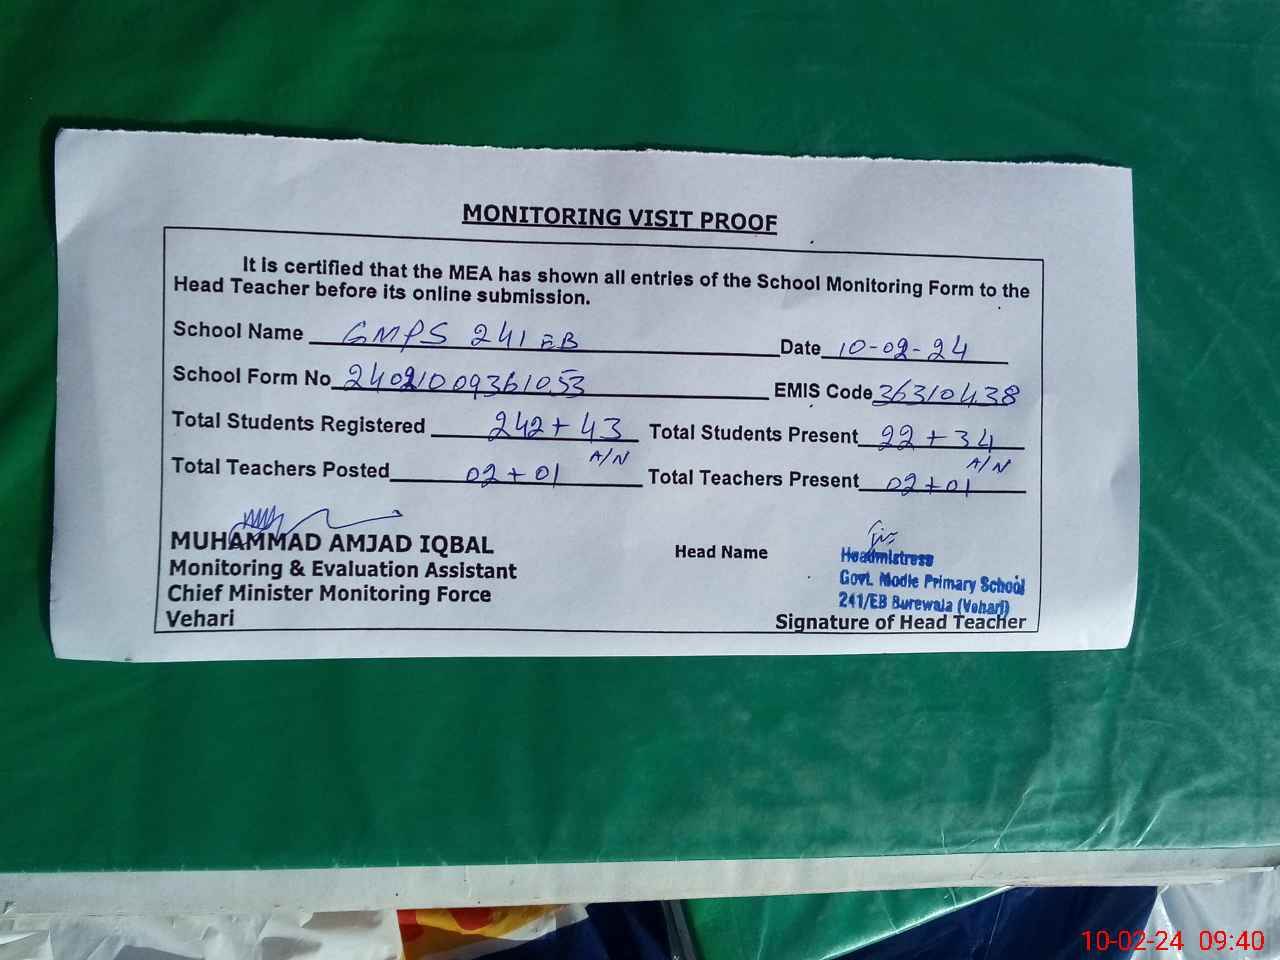 MONITORING VISIT PROOF
It is certified that the MEA has shown all entries of the School Monitoring Form to the
Head Teacher before its online submission.
School Name GMPS 241 EB Date 10-02-24
School Form No 24021009361053 EMIS Code 36310438
Total Students Registered 242+43 Total Students Present 22+34
A/N A/N
Total Teachers Posted 02+01 Total Teachers Present 02+01
MUHAMMAD AMJAD IQBAL
Monitoring & Evaluation Assistant
Chief Minister Monitoring Force
Vehari
Head Name
Headmistress
Govt. Modle Primary School
241/EB Burewala (Vehari)
Signature of Head Teacher
10-02-24 09:40